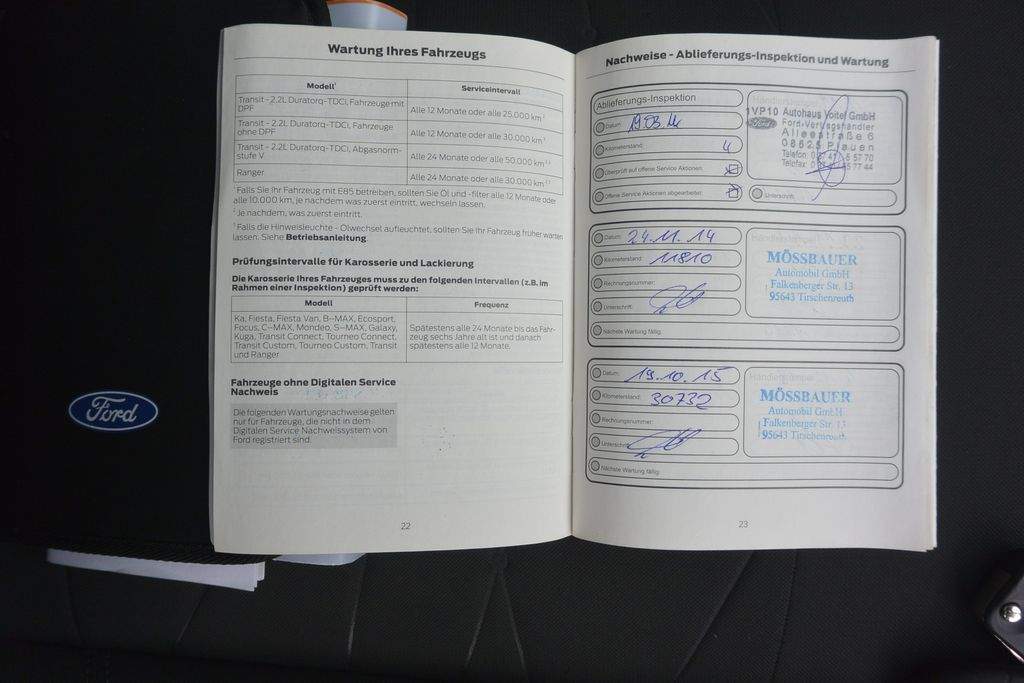 Wartung Ihres Fahrzeugs
Modell¹ Serviceintervall
Transit - 2.2L Duratorq-TDCi, Fahrzeuge mit
DPF
Alle 12 Monate oder alle 25.000 km ²
Transit - 2.2L Duratorq-TDCi, Fahrzeuge
ohne DPF
Alle 12 Monate oder alle 30.000 km ²
Transit - 2.2L Duratorq-TDCi, Abgasnorm-
stufe V
Alle 24 Monate oder alle 50.000 km ² ³
Ranger Alle 24 Monate oder alle 30.000 km ² ³
¹ Falls Sie Ihr Fahrzeug mit E85 betreiben, sollten Sie Öl und -filter alle 12 Monate oder
alle 10.000 km, je nachdem was zuerst eintritt, wechseln lassen.
² Je nachdem, was zuerst eintritt.
³ Falls die Hinweisleuchte - Ölwechsel aufleuchtet, sollten Sie Ihr Fahrzeug früher warten
lassen. Siehe Betriebsanleitung.
Prüfungsintervalle für Karosserie und Lackierung
Die Karosserie Ihres Fahrzeuges muss zu den folgenden Intervallen (z.B. im
Rahmen einer Inspektion) geprüft werden:
Modell Frequenz
Ka, Fiesta, Fiesta Van, B-MAX, Ecosport,
Focus, C-MAX, Mondeo, S-MAX, Galaxy,
Kuga, Transit Connect, Tourneo Connect,
Transit Custom, Tourneo Custom, Transit
und Ranger
Spätestens alle 24 Monate bis das Fahr-
zeug sechs Jahre alt ist und danach
spätestens alle 12 Monate.
Fahrzeuge ohne Digitalen Service
Nachweis
Die folgenden Wartungsnachweise gelten
nur für Fahrzeuge, die nicht in dem
Digitalen Service Nachweissystem von
Ford registriert sind.
22
Ford
Nachweise - Ablieferungs-Inspektion und Wartung
Ablieferungs-Inspektion
Datum: 19.03.14
Kilometerstand: 4
Überprüft auf offene Service Aktionen:
Offene Service Aktionen abgearbeitet:
Händlerstempel
Autohaus Voitel GmbH
Ford
Ford-Vertragshändler
Alleestraße 6
08525 Plauen
Telefon
Telefax
Unterschrift:
Datum: 24.11.14
Kilometerstand: 11810
Rechnungsnummer:
Unterschrift:
Nächste Wartung fällig:
Händlerstempel
MÖSSBAUER
Automobil GmbH
Falkenberger Str. 13
95643 Tirschenreuth
Datum: 19.10.15
Kilometerstand: 30732
Rechnungsnummer:
Unterschrift:
Nächste Wartung fällig:
Händlerstempel
MÖSSBAUER
Automobil GmbH
Falkenberger Str. 13
95643 Tirschenreuth
23